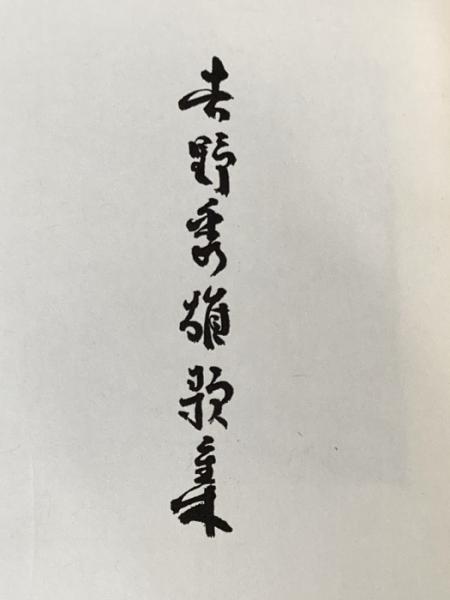 吉野秀雄歌集